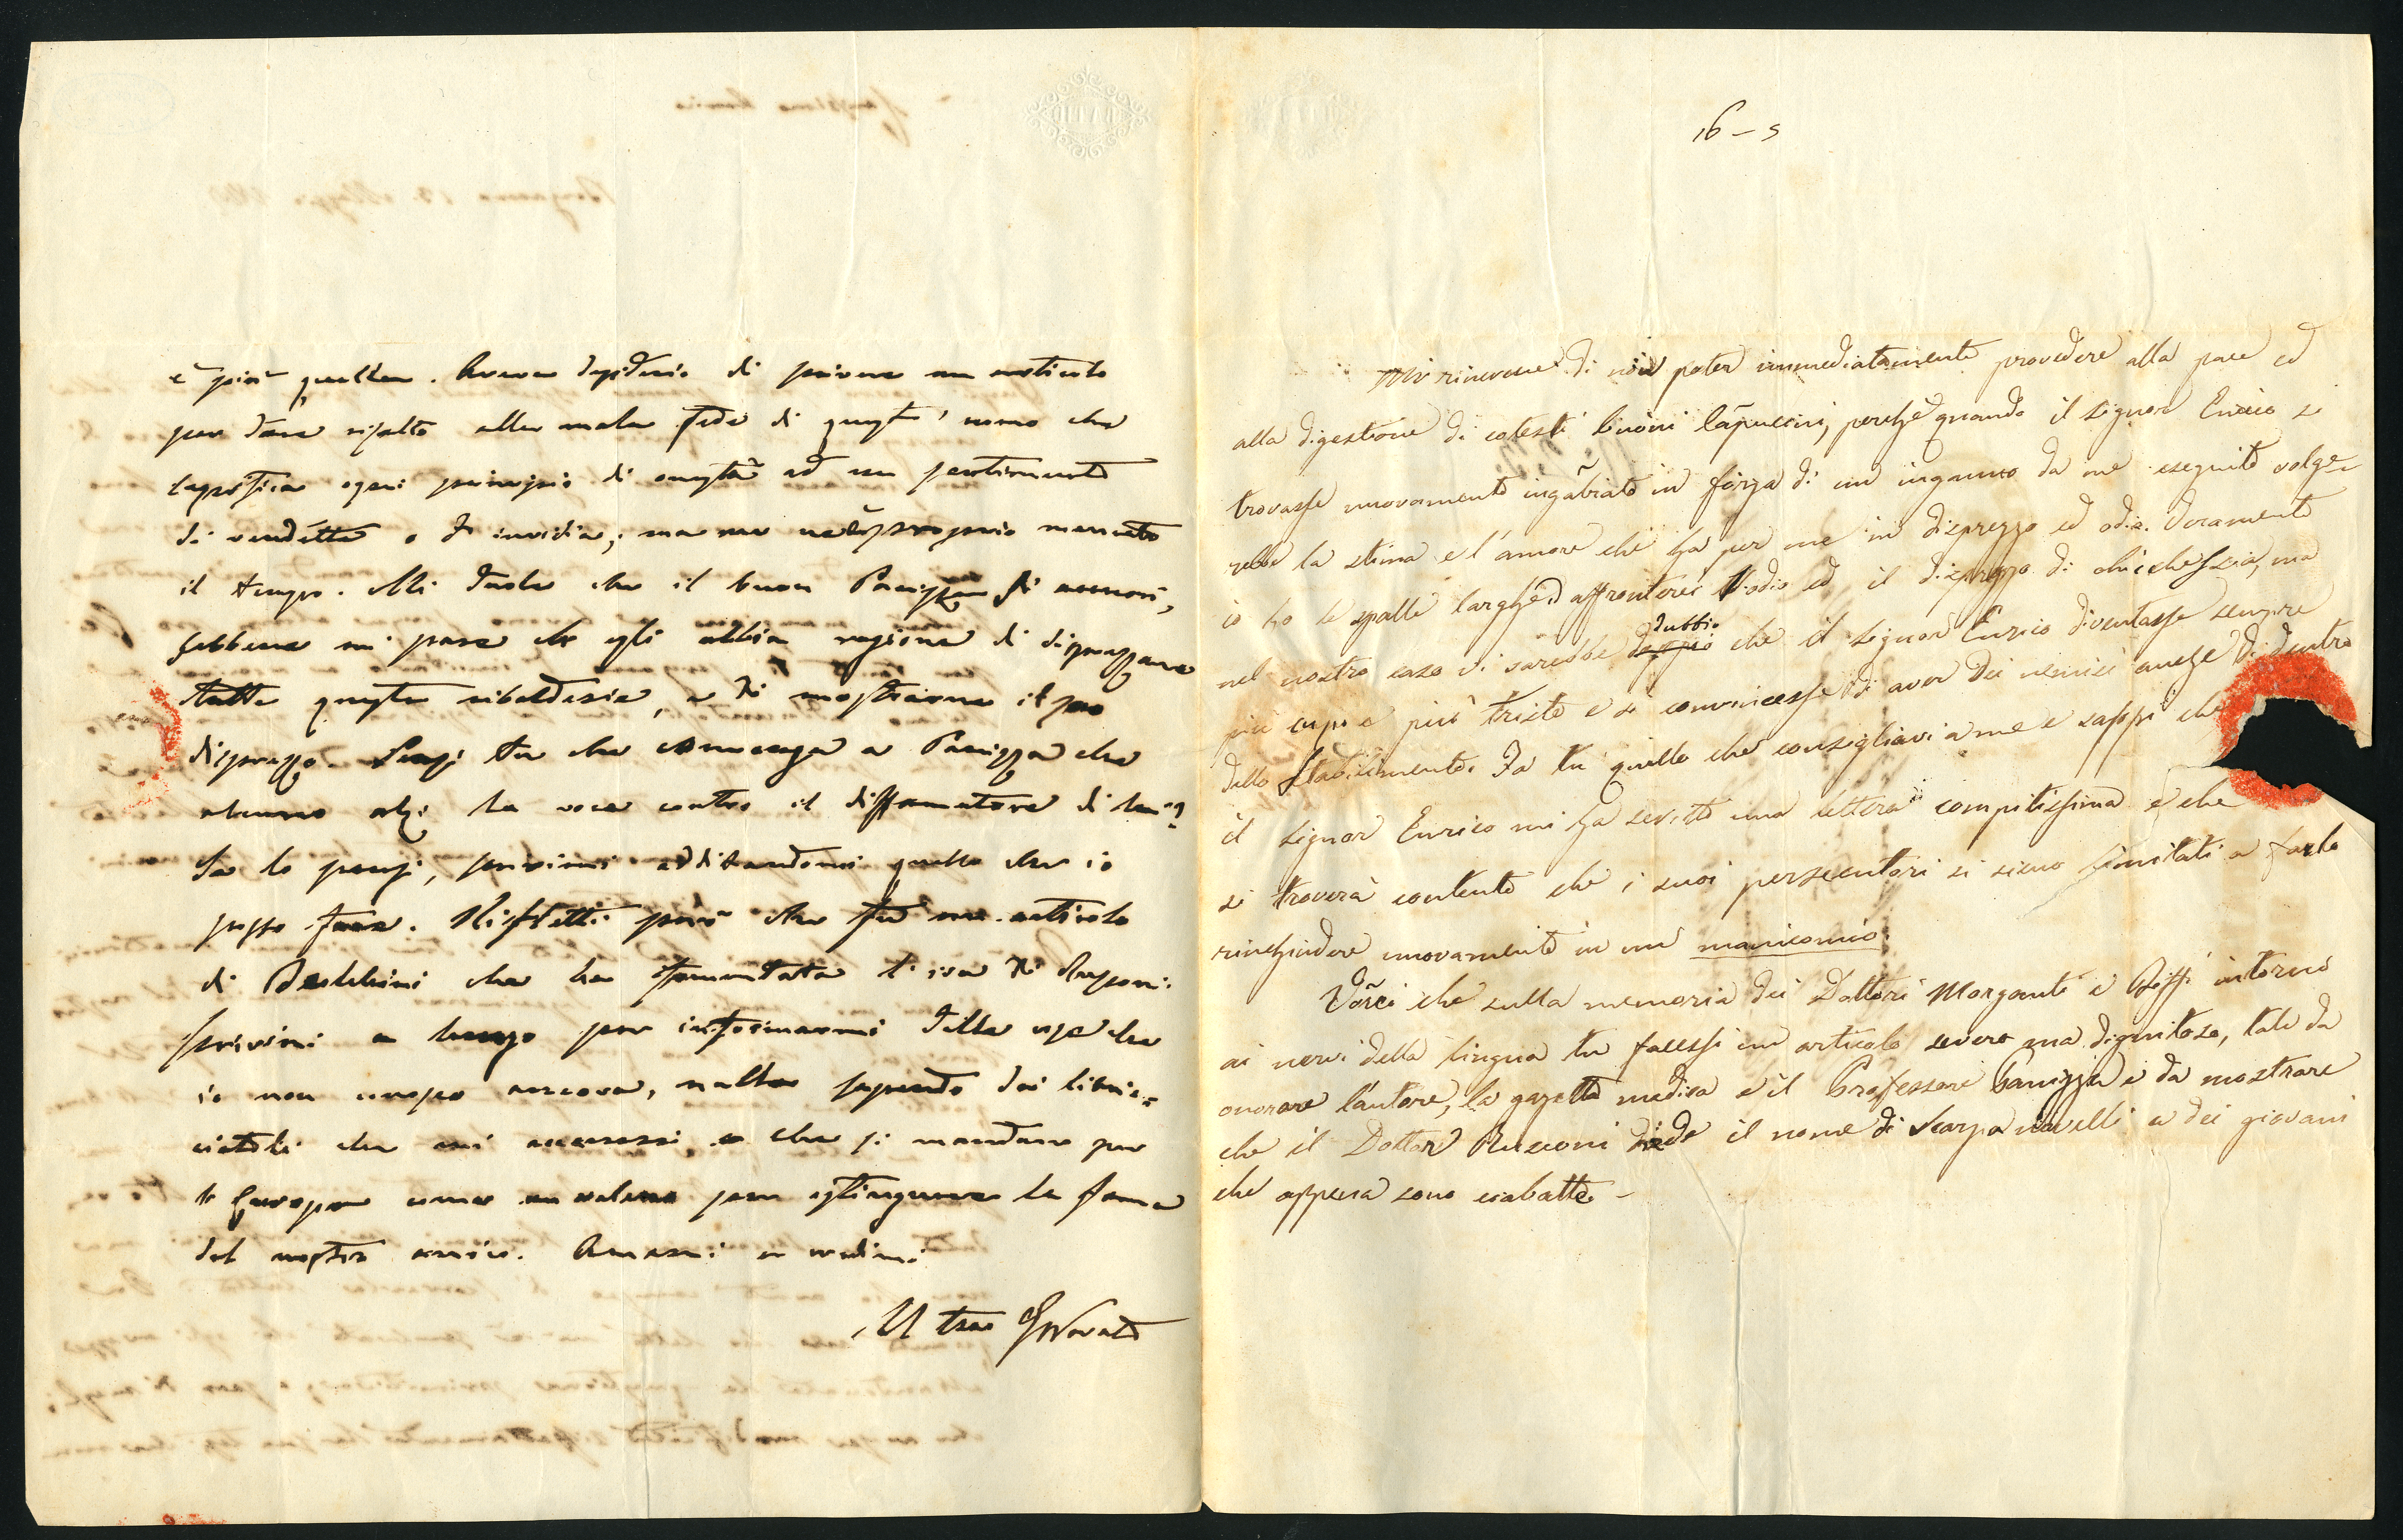 è più quella. Aveva desiderio di scrivere un articolo
per dare risalto alla mala fede di quest'uomo che
sagrifica ogni principio di onestà ad un sentimento
di vendetta o di invidia, ma me ne è proprio mancato
il tempo. Mi duole che il buon Panizza si accuori,
sebbene mi pare che egli abbia ragione di disprezzare
tutte queste ribalderie, e di mostrarne il suo
disprezzo. Pensi tu che convenga a Panizza che
alcuno alzi la voce contro il diffamatore di lui?
Se lo pensi, scrivimi additandomi quello che io
posso fare. Rifletti però che fu un articolo
di che ha fomentata l'ira di Rusconi.
Scrivimi a lungo per informarmi delle cose che
io non conosco ancora, nulla sapendo dei libric-
ciatoli che mi accenni, e che si mandano per
l'Europa come un veleno per estinguere la fama
del nostro amico. Amami e credimi
Il tuo
16 – 5
Mi rincresce di non poter immediatamente provedere alla pace ed
alla digestione di cotesti buoni Capuccini, perchè quando il signor Enrico si
trovasse nuovamente ingabiato in forza di un inganno da me eseguito volge-
rebbe la stima e l'amore che ha per me in disprezzo ed odio. Veramente
io ho le spalle larghe ed affronterei l'odio ed il disprezzo di chicchessia, ma
nel nostro caso vi sarebbe dubbio che il signor Enrico diventasse sempre
più cupo e più triste e si convincesse di aver dei nemici anche di dentro
dello stabilimento. Fa tu quello che consigliavi a me e sappi che
il signor Enrico mi ha scritto una lettera compitissima e che
si troverà contento che i suoi persecutori si sieno limitati a farlo
rinchiudere nuovamente in un manicomio.
Vorrei che sulla memoria dei Dottori Morganti e Biffi intorno
ai nervi della lingua tu facessi un articolo severo ma dignitoso, tale da
onorare l'autore, la gazzetta medica e il Professore Panizza e da mostrare
che il Dottor Rusconi diede il nome di Scarpa novelli a dei giovani
che appena sono ciabatte –